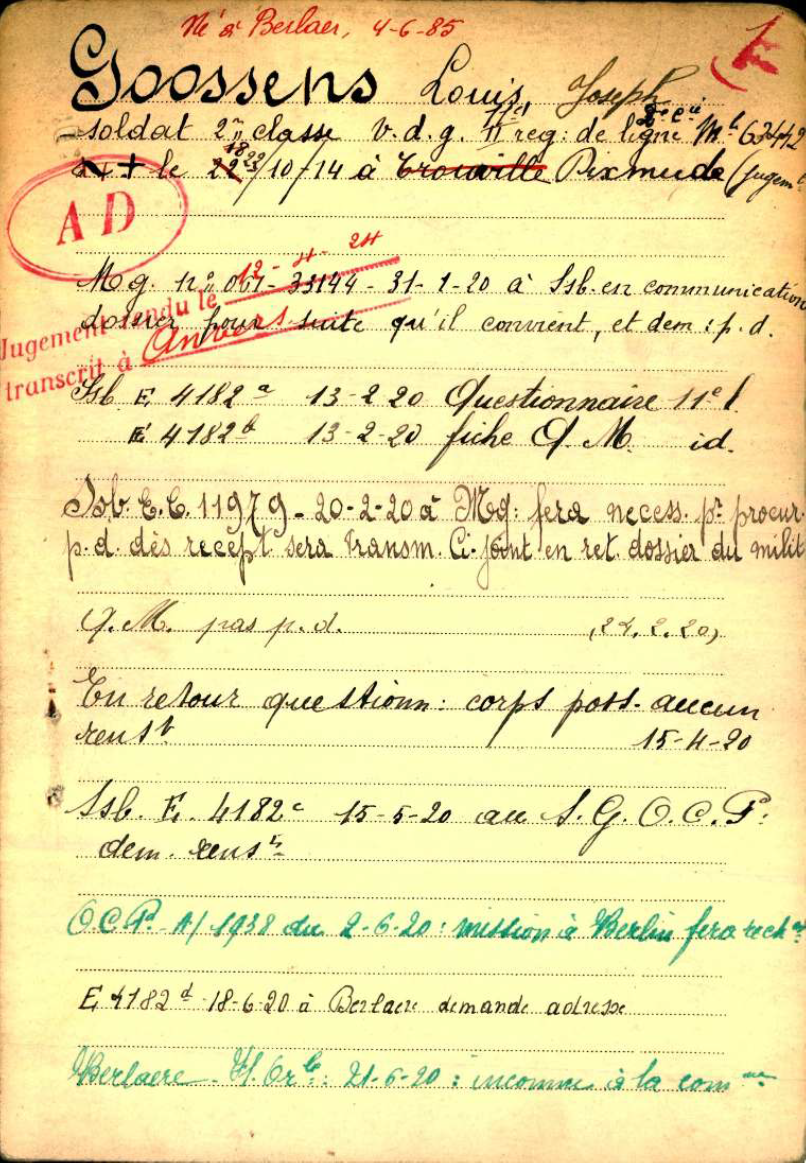 Né à Berlaer, 4-6-85
Goossens Louis, Joseph
soldat 2e classe v.d.g. 11 reg: de ligne Mle 63442
+ le 22/10/14 à Trouville Dixmude (jugemt
18 23
AD
12-4-24
Mg. n° 061-33144-31-1-20 à Ssb. en communication
Jugement rendu le
dossier pour suite qu'il convient, et dem: p.d.
transcrit à Anvers
Ssb E 4182a 13-2-20 Questionnaire 11e l
E 4182b 13-2-20 fiche Q.M. id.
Ssb. E.C. 11979-20-2-20 à Mg: fera necess. pr procur.
p.d. dès recept. sera transm. Ci-joint en ret. dossier du milit
Q.M. pas p.d. (24.2.20)
En retour questionn: corps poss. aucun
renst 15-4-20
Ssb. E. 4182c 15-5-20 au S.G.O.C.P.
dem. rensts
O.C.P. A/1938 du 2-6-20: mission à Berlin fera rech
E 4182d 18-6-20 à Berlaere demande adresse
Berlaere 21-6-20: inconnu à la comne